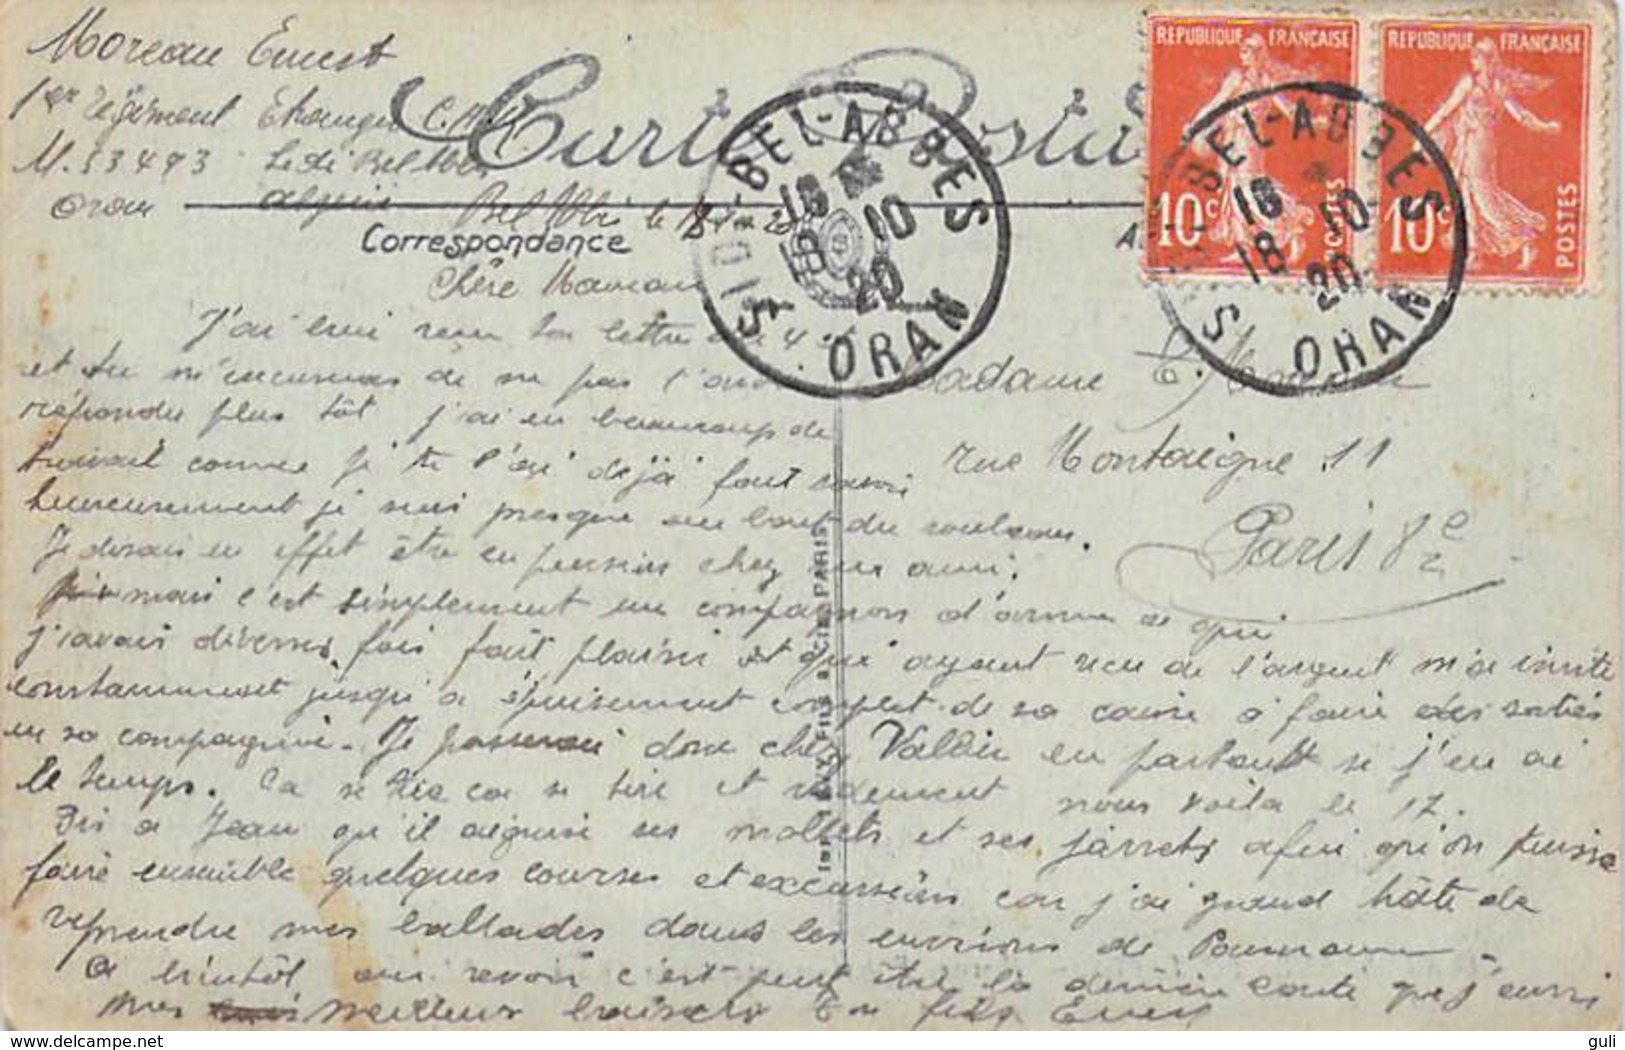 Moreau Ernest
1er régiment Etranger C.
M. 53493 Sidi Bel Abbes
Oran Algérie
Carte Postale
Bel Abbès le
Correspondance
REPUBLIQUE FRANÇAISE
10c
POSTES
REPUBLIQUE FRANÇAISE
10c
POSTES
SIDI-BEL-ABBES
18 10
18 20
ORAN
SIDI-BEL-ABBES
18 10
18 20
ORAN
Chère Maman
J'ai bien reçu ta lettre du 4
et tu m'excuseras de ne pas t'avoir
répondu plus tôt j'ai eu beaucoup de
travail comme je te l'ai déjà fait savoir
heureusement je suis presque au bout du rouleau.
Je devais en effet être en pension chez un ami.
mais c'est simplement un compagnon d'arme à qui
j'avais diverses fois fait plaisir et qui ayant reçu de l'argent m'a invité
constamment jusqu'à épuisement complet de sa caisse à faire des sorties
en sa compagnie. Je passerai donc chez en partant si j'en ai
le temps. Ca se tire ca se tire et rudement nous voila le 17.
Dis à Jean qu'il aiguise ses mollets et ses jarrets afin qu'on puisse
faire ensemble quelques courses et excursions car j'ai grand hâte de
reprendre mes ballades dans les environs de
A bientôt au revoir c'est peut être la dernière carte que j'envoi
Mes meilleurs baisers Ton fils Ernest
Madame E. Moreau
rue Montaigne 11
Paris 8e
IMP. LEVY FILS & CIE PARIS
delcampe.net
guli